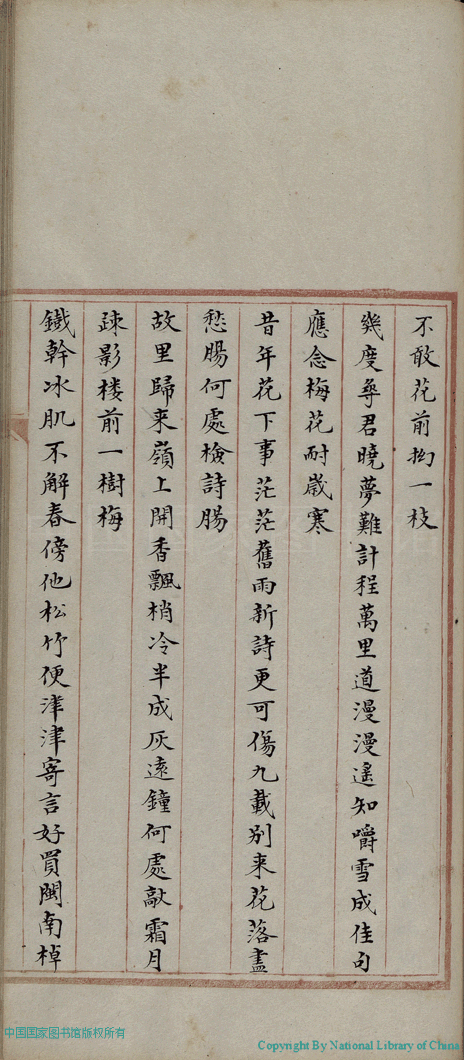 不敢花前拗一枝
幾度尋君曉夢難計程萬里道漫漫遙知嚼雪成佳句
應念梅花耐歲寒
昔年花下事茫茫舊雨新詩更可傷九載別来花落盡
愁腸何處檢詩腸
故里歸来嶺上開香飄梢冷半成灰遠鐘何處敲霜月
疎影楼前一樹梅
鐵幹冰肌不解春傍他松竹便津津寄言好買閩南棹
中国国家图书馆版权所有
Copyright By National Library of China